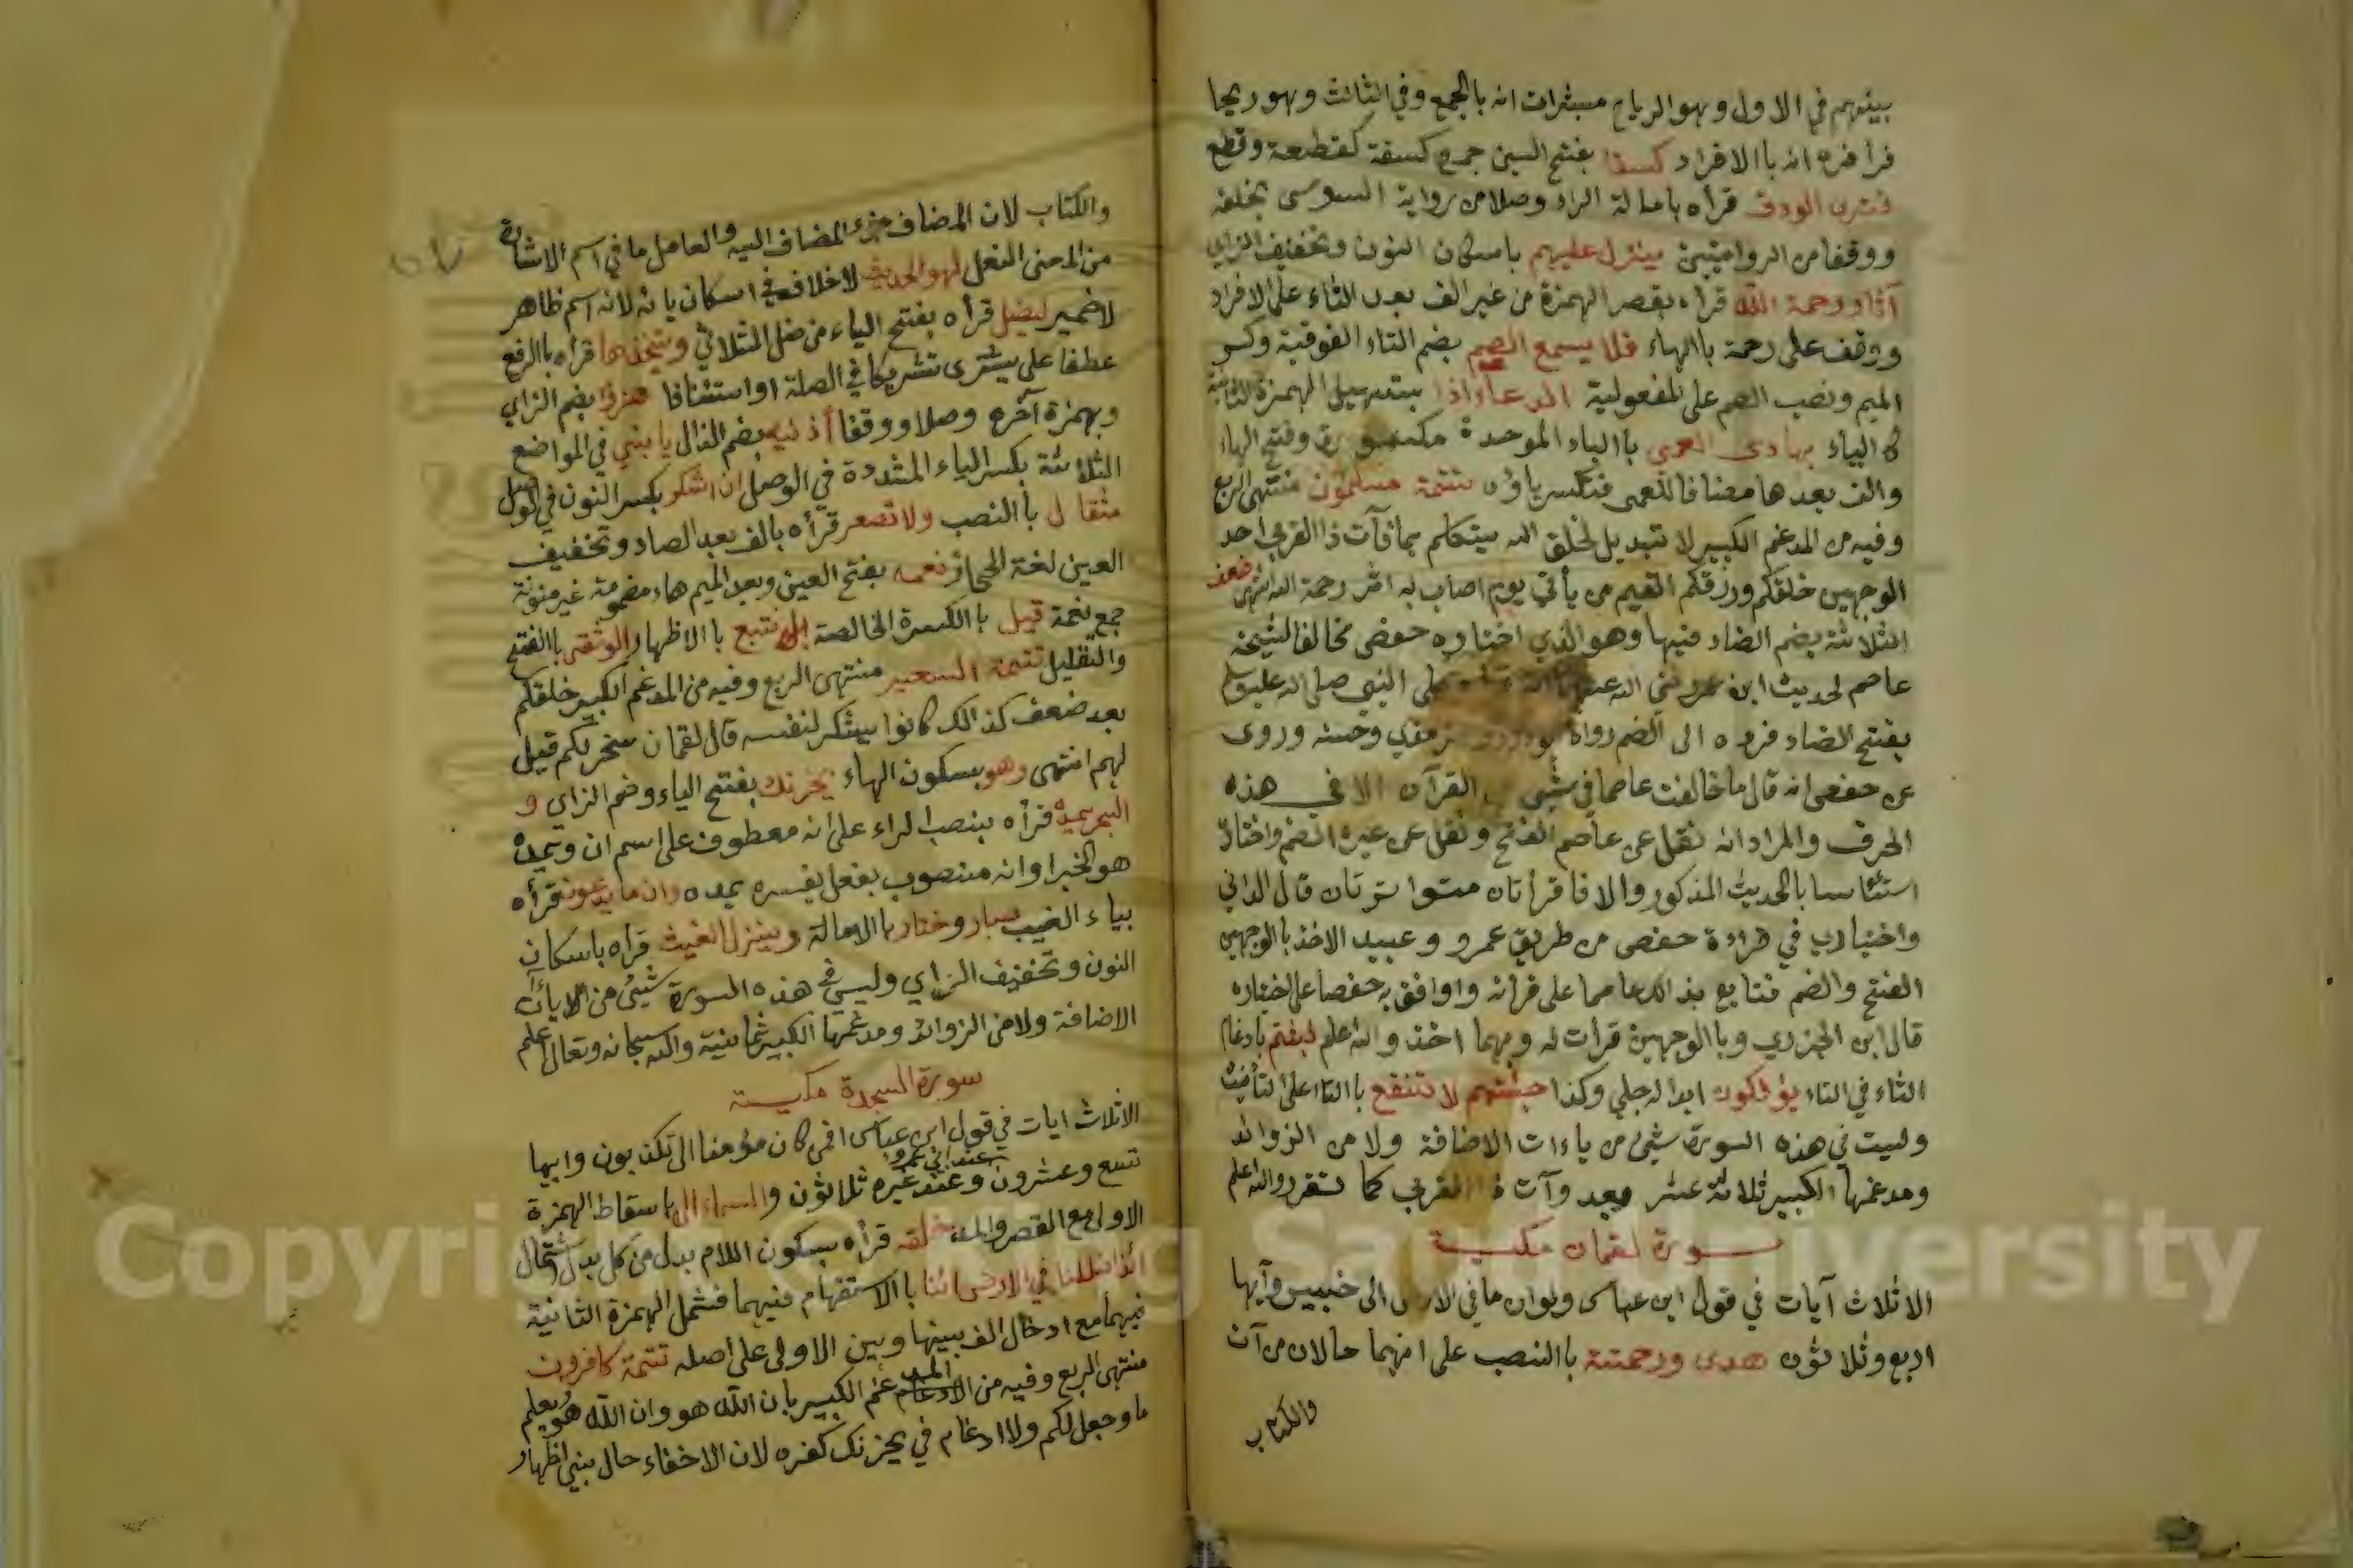 بينهم في الاول وهو الرياح مبشرات انه بالجمع وفي الثالث وهو ريحا
فراه انه باالافراد كسفا بفتح السين جمع كسفة كقطعة وقطع
فترى الودق قرأه بامالة الراء وصلا من رواية السوسى بخلفه
ووقفا من الروايتين ينزل عليهم باسكان النون وتخفيف الزاي
آثار رحمة الله قرأه بقصر الهمزة من غير الف بعد الثاء على الافراد
ووقف على رحمة باالهاء فلا يسمع الصم بضم التاء الفوقية وكسر
الميم ونصب الصم على المفعولية الدعاء اذا بتسهيل الهمزة الثانية
كالياء بهادى العمى باالباء الموحدة مكسورة وفتح الهاء
والف بعدها مضافا للعمى فتكسر ياؤه تتمة مسلمون منتهى الربع
وفيه من المدغم الكبير لا تبديل لخلق الله يتكلم بما فآت ذا القربى احد
الوجهين خلقكم ورزقكم القيم من يأتي يوم اصاب به اثر رحمة الله انتهى ضعف
الثلاثة بضم الضاد فيها وهو الذي اختاره حفص مخالفا لشيخه
عاصم لحديث ابن عمر رضي الله عنهما على النبي صلى الله عليه وسلم
بفتح الضاد فرده الى الضم رواه وحسنه وروى
عن حفص انه قال ما خالفت عاصما في شيئ القرآن الا في هذه
الحرف والمراد انه نقل عن عاصم الفتح ونقل عن غيره الضم واختاره
استئناسا بالحديث المذكور والا فاقرأتان متواترتان قال الداني
واختياري في قراءة حفص من طريق عمرو وعبيد الاخذ بالوجهين
الفتح والضم فتابع بذالك عاصما على قرأته واوافق به حفصا على اختياره
قال ابن الجزري وباالوجهين قرأت له وبهما اخذ والله اعلم لبثتم بادغام
الثاء في التاء يؤفكون ابداله جلي وكذا جئتهم لا تنفع باالتاء على التأنيث
وليست في هذه السورة شيئ من ياءات الاضافة ولا من الزوائد
ومدغمها الكبير ثلاثة عشر بعد وآت ذا القربى كما تقرر والله اعلم
سورة لقمان مكية
الا ثلاث آيات في قول ابن عباس ولو ان ما في الارض الى خبير وآيها
اربع وثلاثون هدى ورحمة باالنصب على انهما حالان من آيات
والكتاب
والكتاب لان المضاف جزء المضاف اليه والعامل ما في اسم الاشارة
من المعنى الفعل لهو الحديث لا خلاف في اسكان يائه لانه اسم ظاهر
لا ضمير ليضل قرأه بفتح الياء من ضل الثلاثي ويتخذها قرأه باالرفع
عطفا على يشترى تشريكا في الصلة او استئنافا هزؤا بضم الزاي
وبهمزة آخره وصلا ووقفا أذنيه بضم الذال يابني في المواضع
الثلاثة بكسر الياء المشددة في الوصل ان اشكر بكسر النون في الوصل
مثقال باالنصب ولا تصعر قرأه بالف بعد الصاد وتخفيف
العين لغة الحجاز نعمه بفتح العين وبعد الميم هاء مضمومة غير منونة
جمع نعمة قيل باالكسرة الخالصة بل نتبع باالاظهار الوثقى باالفتح
والتقليل تتمة السعير منتهى الربع وفيه من المدغم الكبير خلقكم
بعد ضعف كذالك كانوا يشكر لنفسه قال لقمان سخر لكم قيل
لهم انتهى وهو بسكون الهاء يحزنك بفتح الياء وضم الزاي و
البحر يمده قرأه بنصب الراء على انه معطوف على اسم ان ويمده
هو الخبر او انه منصوب بفعل يفسره يمده وان ما يدعون قرأه
بياء الغيب صبار وختار باالامالة وينزل الغيث قرأه باسكان
النون وتخفيف الزاي وليس في هذه السورة شيئ من الايات
الاضافة ولا من الزوائد ومدغمها الكبير ثمانية والله سبحانه وتعالى اعلم
سورة السجدة مكية
الا ثلاث ايات في قول ابن عباس افمن كان مؤمنا الى تكذبون وايها
تسع وعشرون عند ابي عمرو وعند غيره ثلاثون والسماء الى باسقاط الهمزة
الاولى مع القصر والمد خلقه قرأه بسكون اللام بدل من كل بدل اشتمال
ائذا ضللنا في الارض ائنا باالاستفهام فيهما فشمل الهمزة الثانية
فيهما مع ادخال الف بينها وبين الاولى على اصله تتمة كافرون
منتهى الربع وفيه من المدغم الكبير بان الله هو وان الله هو يعلم
ما وجعل لكم ولا ادغام في يحزنك كفره لان الاخفاء حال بين اظهار
Copyright © King Saud University